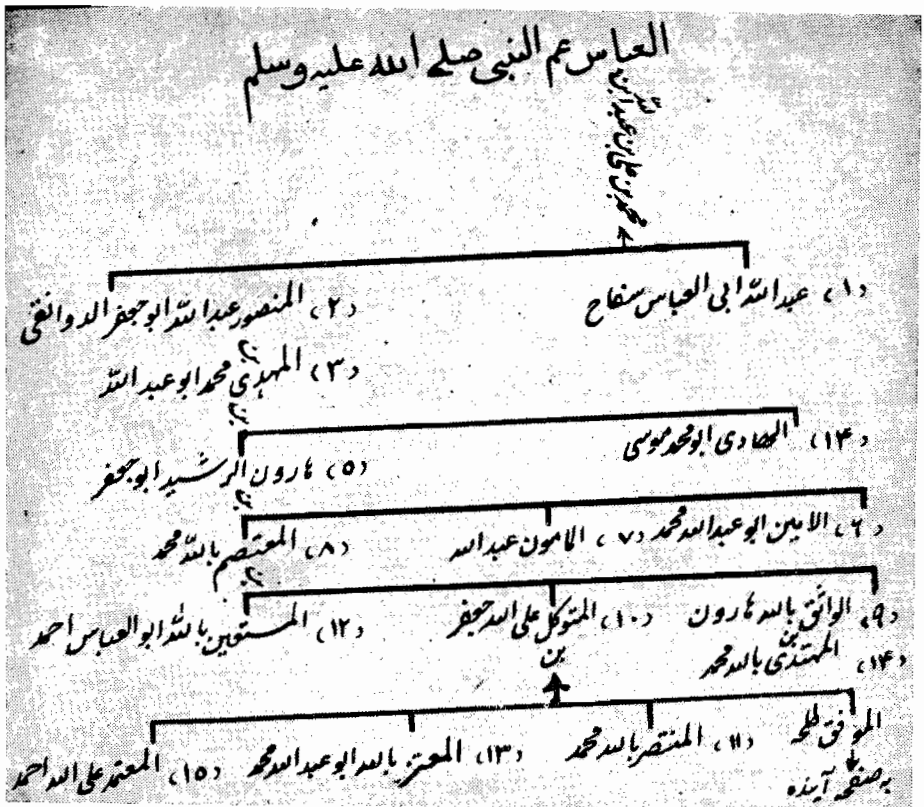 العباس عم النبی صلے اللہ علیہ وسلم
محمد بن علی بن عبداللہ بن
(۱) عبداللہ ابی العباس سفاح (۲) المنصور عبداللہ ابو جعفر الدوانقی
بن
(۳) المہدی محمد ابو عبداللہ
بن
(۱۴) الھادی ابو محمد موسی
(۵) ہارون الرشید ابو جعفر
بن
(۶) الامین ابو عبداللہ محمد (۷) المامون عبداللہ (۸) المعتصم باللہ محمد
بن
(۹) الواثق باللہ ہارون (۱۰) المتوکل علی اللہ جعفر (۱۲) المستعین باللہ ابو العباس احمد
بن بن
(۱۴) المہتدی باللہ محمد
الموفق طلحہ (۱۱) المنتصر باللہ محمد (۱۳) المعتز باللہ ابو عبداللہ محمد (۱۵) المعتمد علی اللہ احمد
بر صفحہ آیندہ